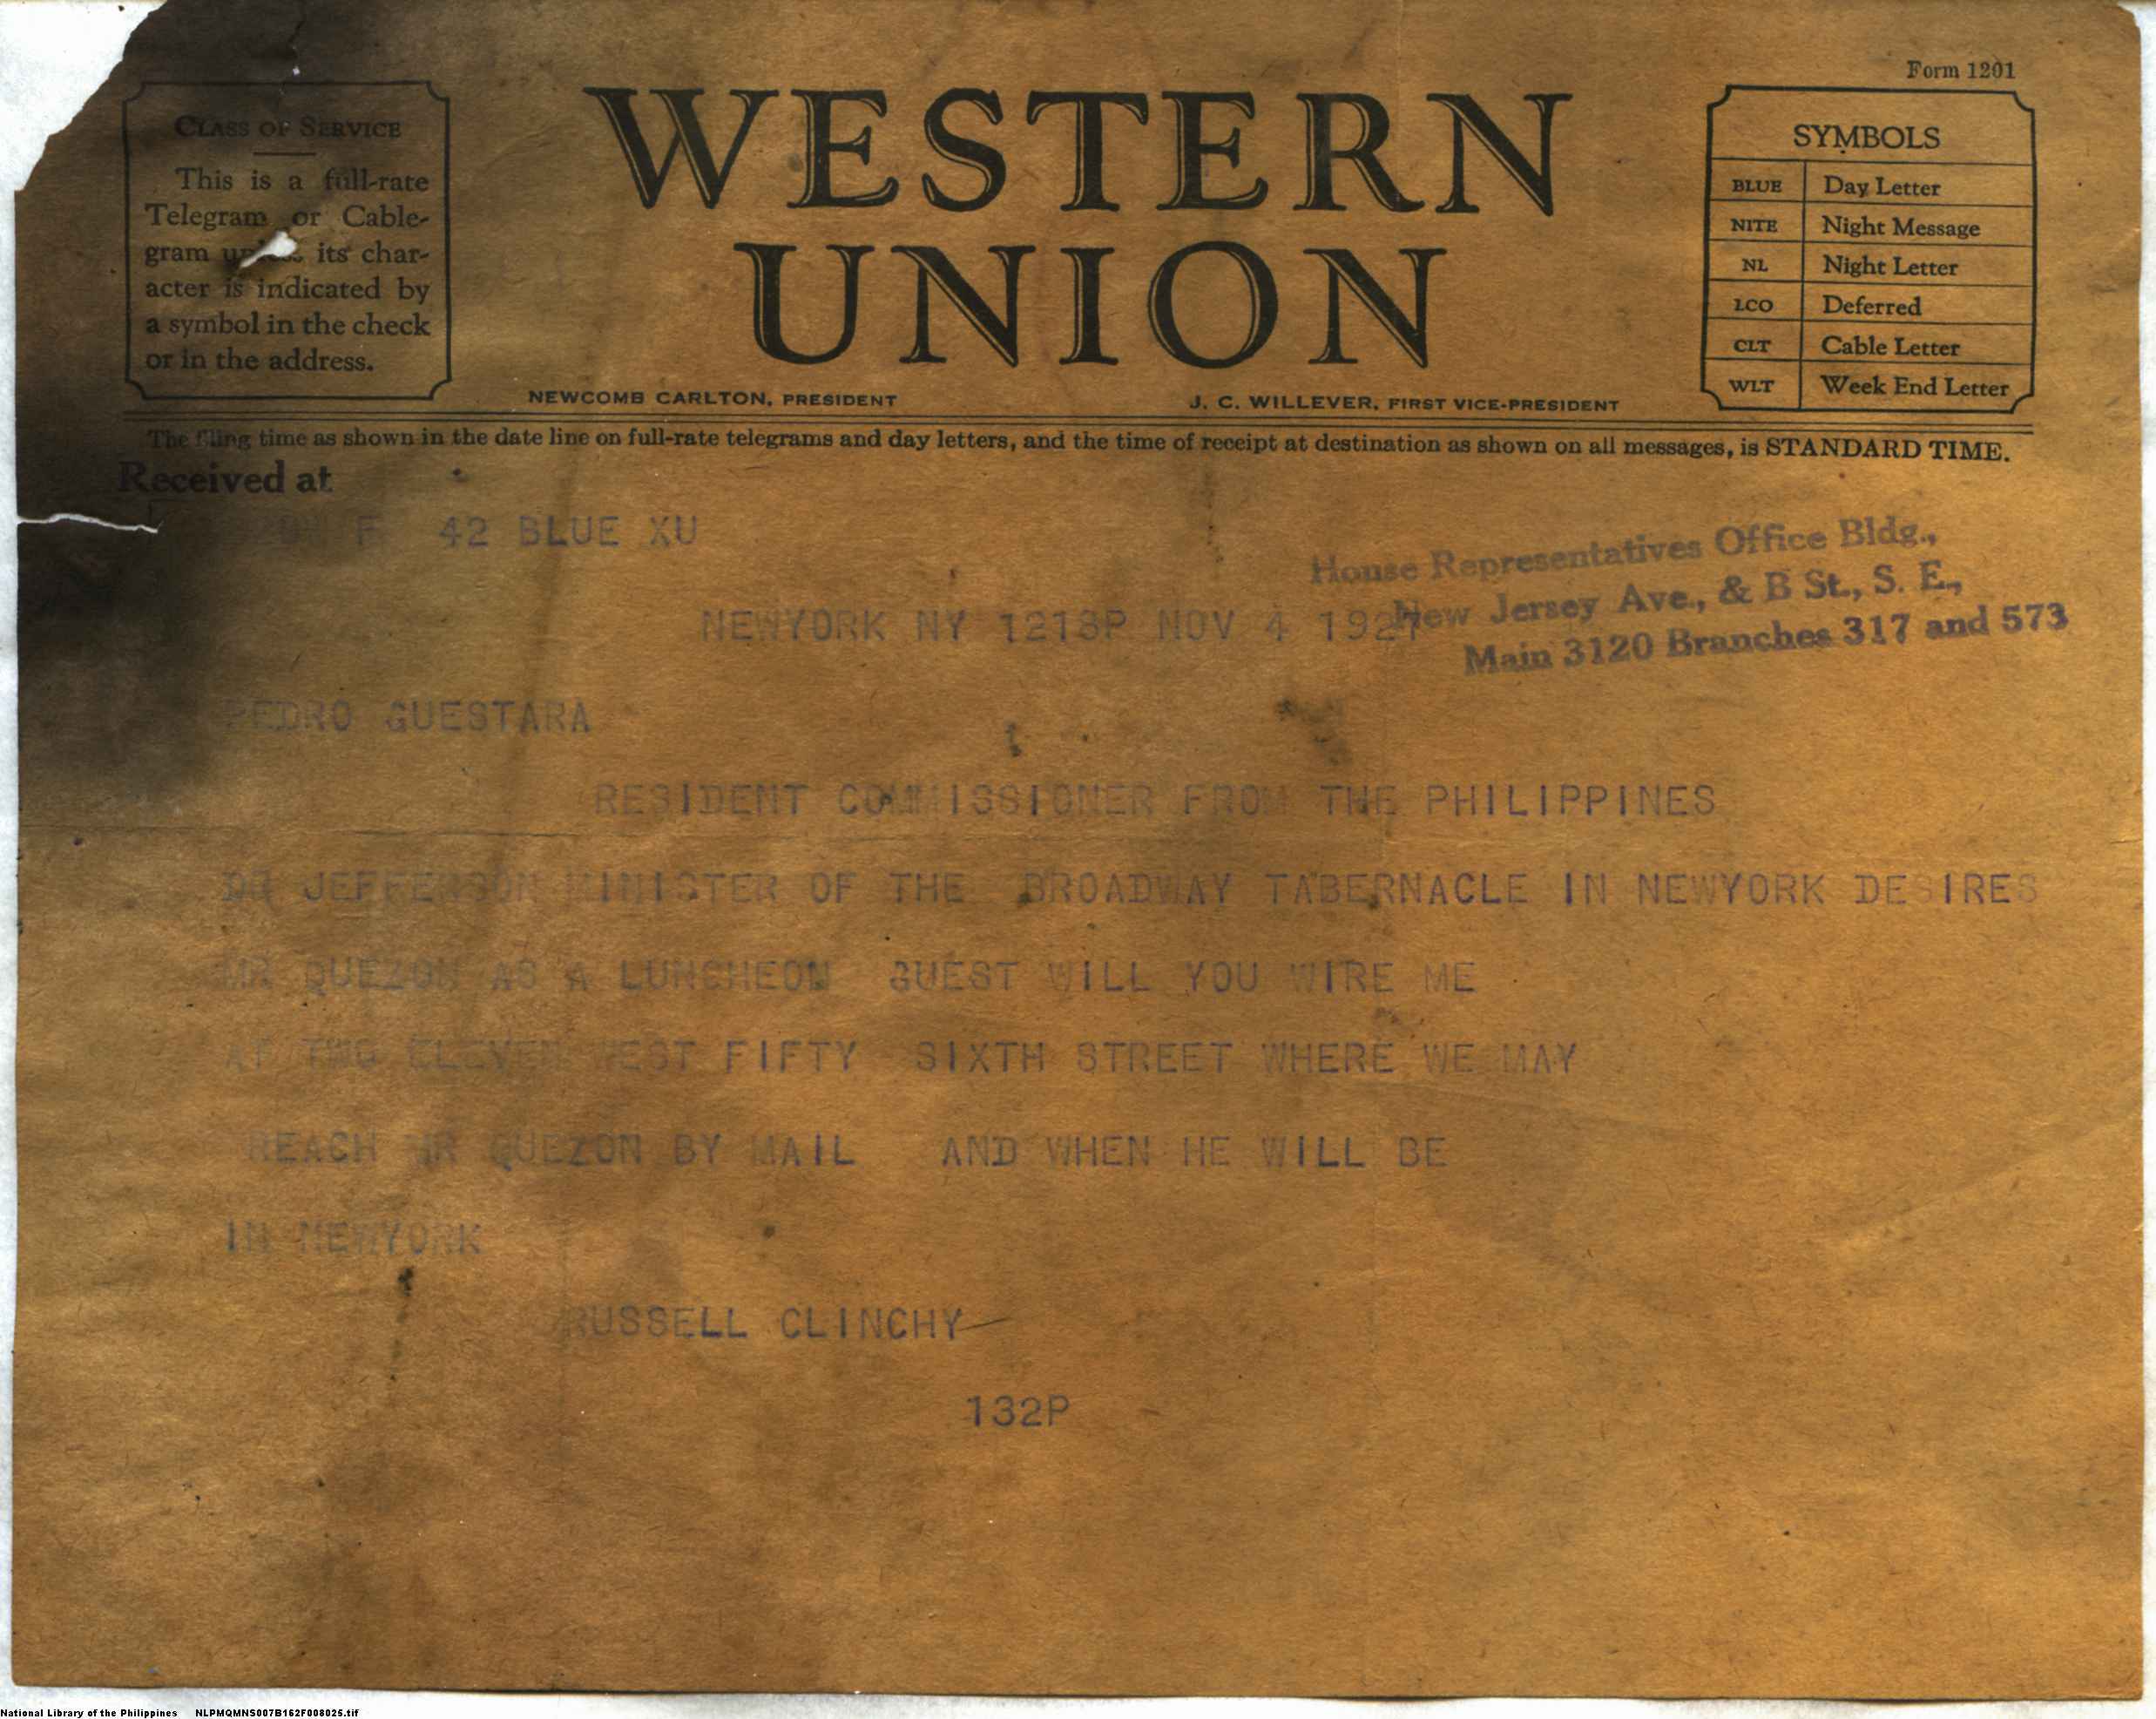 Form 1201
CLASS OF SERVICE
This is a full-rate
Telegram or Cable-
gram its char-
acter is indicated by
a symbol in the check
or in the address.
WESTERN
UNION
NEWCOMB CARLTON, PRESIDENT
J. C. WILLEVER, FIRST VICE-PRESIDENT
SYMBOLS
BLUE Day Letter
NITE Night Message
NL Night Letter
LCO Deferred
CLT Cable Letter
WLT Week End Letter
The filing time as shown in the date line on full-rate telegrams and day letters, and the time of receipt at destination as shown on all messages, is STANDARD TIME.
Received at
F 42 BLUE XU
House Representatives Office Bldg.,
New Jersey Ave., & B St., S. E.,
Main 3120 Branches 317 and 573
NEWYORK NY 1213P NOV 4 1927
PEDRO GUESTARA
RESIDENT COMMISSIONER FROM THE PHILIPPINES
DR JEFFERSON MINISTER OF THE BROADWAY TABERNACLE IN NEWYORK DESIRES
MR QUEZON AS A LUNCHEON GUEST WILL YOU WIRE ME
AT TWO ELEVEN WEST FIFTY SIXTH STREET WHERE WE MAY
REACH MR QUEZON BY MAIL AND WHEN HE WILL BE
IN NEWYORK
RUSSELL CLINCHY
132P
National Library of the Philippines NLPMQMNS007B162F008025.tif